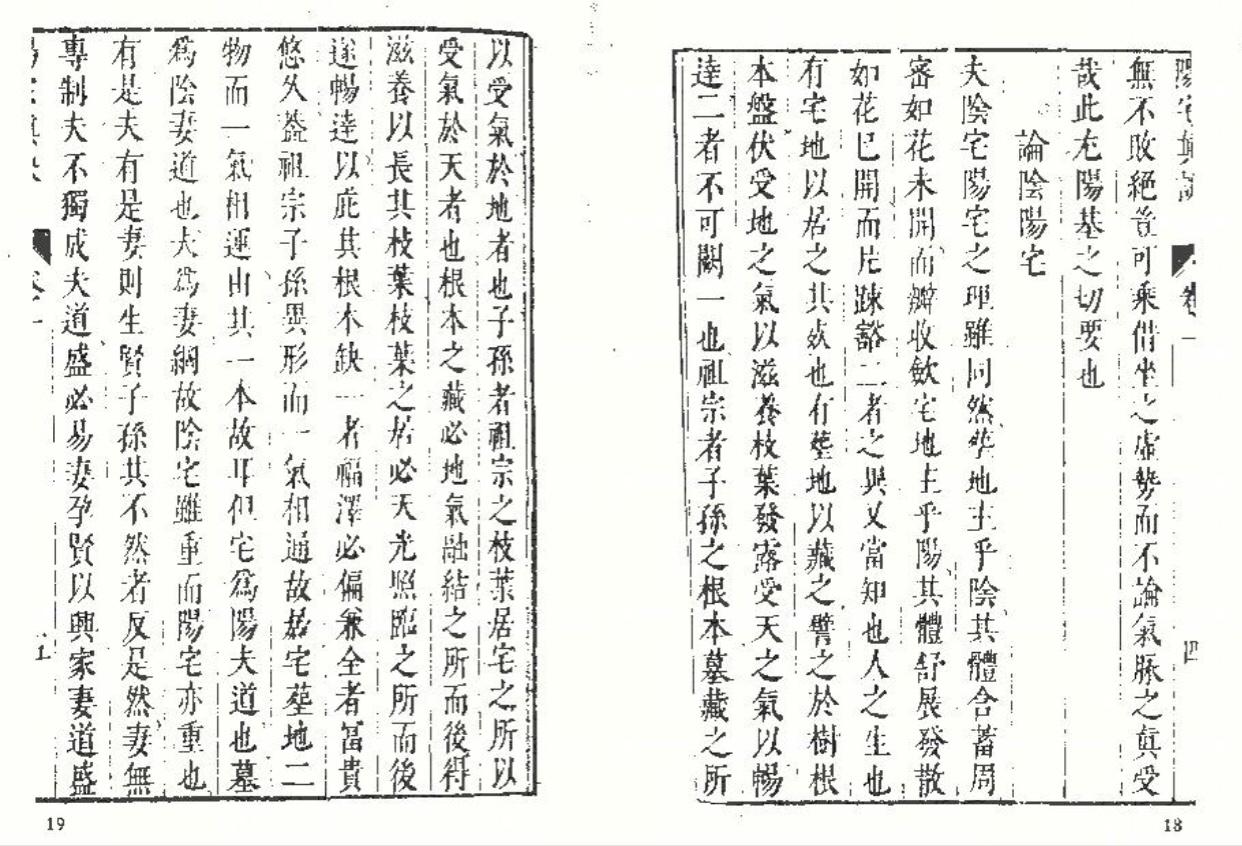 陽宅眞訣 卷一 四
無不敗絕豈可乘借坐之虛勢而不論氣脉之眞受
哉此尤陽基之切要也
論陰陽宅
夫陰宅陽宅之理雖同然塋地主乎陰其體含蓄周
密如花未開而瓣收斂宅地主乎陽其體舒展發散
如花已開而片踈豁二者之異又當知也人之生也
有宅地以居之其歿也有塋地以藏之譬之於樹根
本盤伏受地之氣以滋養枝葉發露受天之氣以暢
達二者不可闕一也祖宗者子孫之根本墓藏之所
18
以受氣於地者也子孫者祖宗之枝葉居宅之所以
受氣於天者也根本之藏必地氣融結之所而後得
滋養以長其枝葉枝葉之居必天光照臨之所而後
遂暢達以庇其根本缺一者福澤必偏兼全者富貴
悠久葢祖宗子孫異形而一氣相通故居宅塋地二
物而一氣相運由其一本故耳但宅爲陽夫道也墓
爲陰妻道也夫爲妻綱故陰宅雖重而陽宅亦重也
有是夫有是妻則生賢子孫其不然者反是然妻無
專制夫不獨成夫道盛必易妻孕賢以興家妻道盛
卷一 五
19